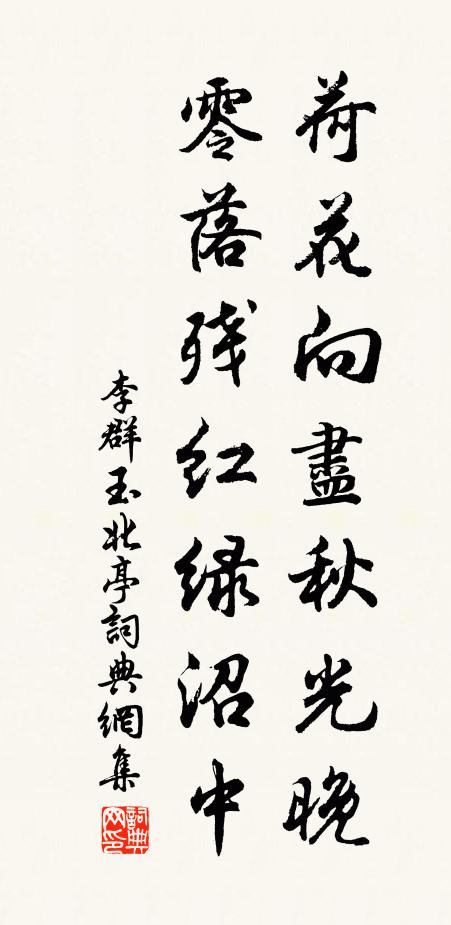 荷花向盡秋光晚
零落殘红绿沼中
李群玉北亭詞典網集
詞典网印